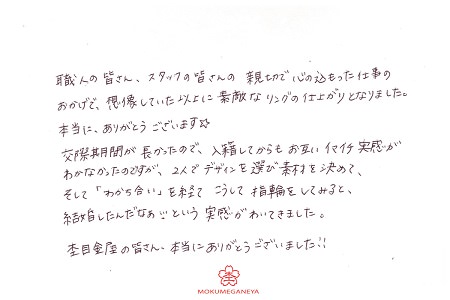 職人の皆さん、スタッフの皆さんの 親切で心の込もった仕事の
おかげで、想像していた以上に素敵なリングの仕上がりとなりました。
本当に、ありがとうございます☆
交際期間が長かったので、入籍してからもお互いイマイチ実感が
わかなかったのですが、2人でデザインを選び素材を決めて、
そして「わかち合い」を経て こうして 指輪をしてみると、
結婚したんだなぁという 実感がわいてきました。
杢目金屋の皆さん、本当にありがとうございました!!
MOKUMEGANEYA